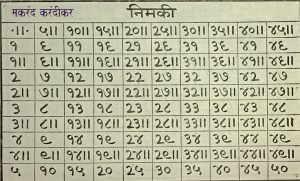 मकरंद करंदीकर
निमकी
·॥· ५॥ १०॥ १५॥ २०॥ २५॥ ३०॥ ३५॥ ४०॥ ४५॥
१ ६ ११ १६ २१ २६ ३१ ३६ ४१ ४६
१॥ ६॥ ११॥ १६॥ २१॥ २६॥ ३१॥ ३६॥ ४१॥ ४६॥
२ ७ १२ १७ २२ २७ ३२ ३७ ४२ ४७
२॥ ७॥ १२॥ १७॥ २२॥ २७॥ ३२॥ ३७॥ ४२॥ ४७॥
३ ८ १३ १८ २३ २८ ३३ ३८ ४३ ४८
३॥ ८॥ १३॥ १८॥ २३॥ २८॥ ३३॥ ३८॥ ४३॥ ४८॥
४ ९ १४ १९ २४ २९ ३४ ३९ ४४ ४९
४॥ ९॥ १४॥ १९॥ २४॥ २९॥ ३४॥ ३९॥ ४४॥ ४९॥
५ १० १५ २० २५ ३० ३५ ४० ४५ ५०